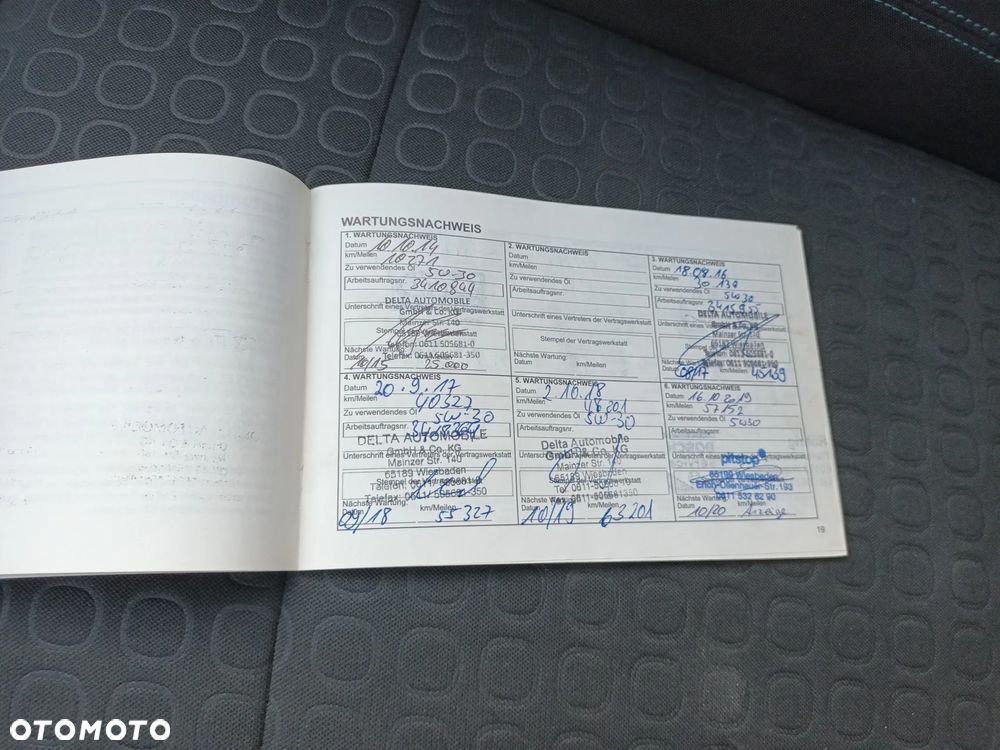 WARTUNGSNACHWEIS
1. WARTUNGSNACHWEIS
Datum 10.10.14
km/Meilen 10271
Zu verwendendes Öl 5W-30
Arbeitsauftragsnr. 3410844
Unterschrift eines Vertreters der Vertragswerkstatt
DELTA AUTOMOBILE
GmbH & Co. KG
Mainzer Str. 140
Stempel der Vertragswerkstatt
Telefon: 0611 505681-0
Telefax: 0611 505681-350
Nächste Wartung:
Datum 10/15 km/Meilen 25.000
2. WARTUNGSNACHWEIS
Datum
km/Meilen
Zu verwendendes Öl
Arbeitsauftragsnr.
Unterschrift eines Vertreters der Vertragswerkstatt
Stempel der Vertragswerkstatt
Nächste Wartung:
Datum km/Meilen
3. WARTUNGSNACHWEIS
Datum 18.08.16
km/Meilen 30 139
Zu verwendendes Öl 5W30
Arbeitsauftragsnr.
DELTA AUTOMOBILE
GmbH & Co. KG
Mainzer Str.
65189 Wiesbaden
Nächste Wartung:
Datum 08/17 km/Meilen 45139
4. WARTUNGSNACHWEIS
Datum 20.9.17
km/Meilen 40327
Zu verwendendes Öl 5W-30
Arbeitsauftragsnr.
DELTA AUTOMOBILE
GmbH & Co. KG
Unterschrift eines Vertreters der Vertragswerkstatt
Mainzer Str. 140
65189 Wiesbaden
Stempel der Vertragswerkstatt
Telefon: 0611 505681-0
Telefax: 0611 505681-350
Nächste Wartung:
Datum 09/18 km/Meilen 55327
5. WARTUNGSNACHWEIS
Datum 2.10.18
km/Meilen 48201
Zu verwendendes Öl 5W-30
Arbeitsauftragsnr.
Delta Automobile
GmbH & Co. KG
Unterschrift eines Vertreters der Vertragswerkstatt
Mainzer Str.
65189 Wiesbaden
Stempel der Vertragswerkstatt
Nächste Wartung:
Datum 10/19 km/Meilen 63201
6. WARTUNGSNACHWEIS
Datum 16.10.2019
km/Meilen 57152
Zu verwendendes Öl 5W30
Arbeitsauftragsnr.
pitstop
Unterschrift eines Vertreters der Vertragswerkstatt
65199 Wiesbaden
Stempel der Vertragswerkstatt
Erich-Ollenhauer-Str. 193
0611 532 82 90
Nächste Wartung:
Datum 10/20 km/Meilen Anzeige
19
OTOMOTO